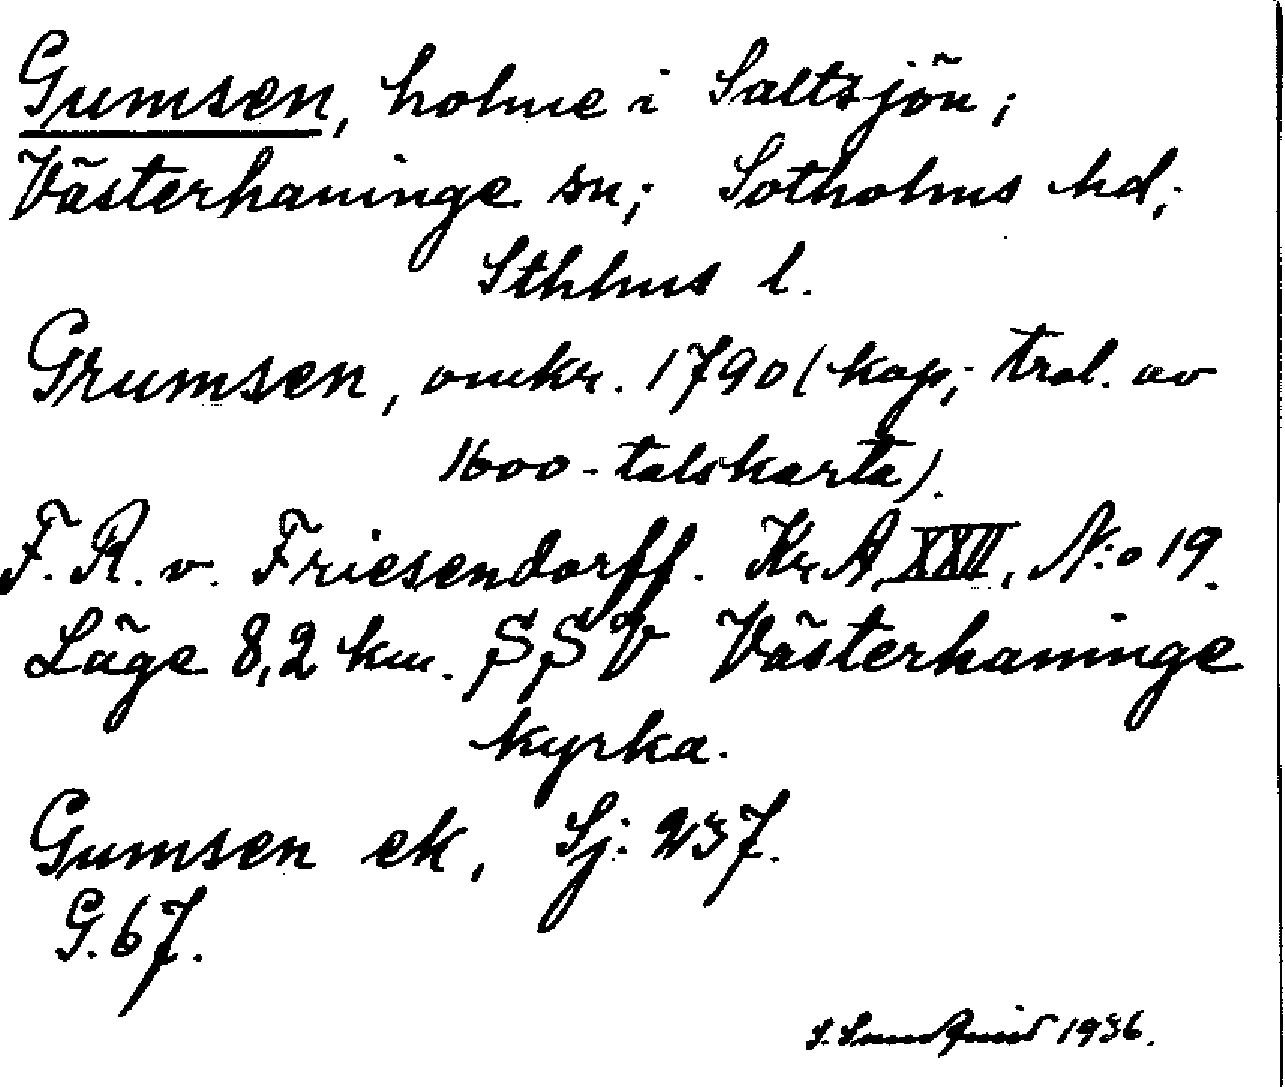 Gumsen, holme i Saltsjön;
Västerhaninge sn; Sotholms hd;
Sthlms l.
Grumsen, omkr. 1790 (kop; trol. av
1600-talskarta).
F. R. v. Friesendorff. Kr A XXII, N:o 19.
Läge 8,2 km. SSV Västerhaninge
kyrka.
Gumsen ek, Sj: 237.
G. 67.
S. Sundquist 1936.